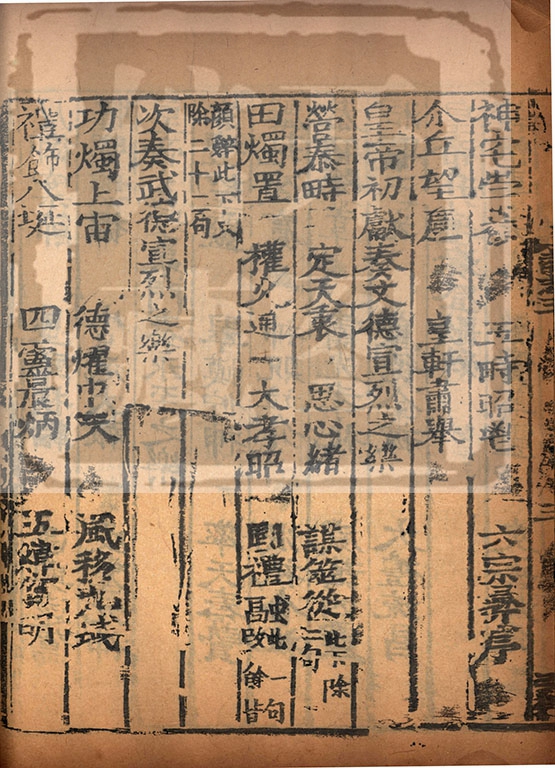 神宅 五時昭 六宗彝序
介丘望塵 皇軒肅舉
皇帝初獻奏文德宣烈之樂
營泰畤 定天衷 思心緒 謀筮從 此下除二句
田燭置 權火通 大孝昭 國禮 此一句改餘皆
顏辭此下又除二十一句
次奏武德宣烈之樂
功燭上宙 德燿中天 風移
禮飾八埏 四靈晨炳 五緯 明